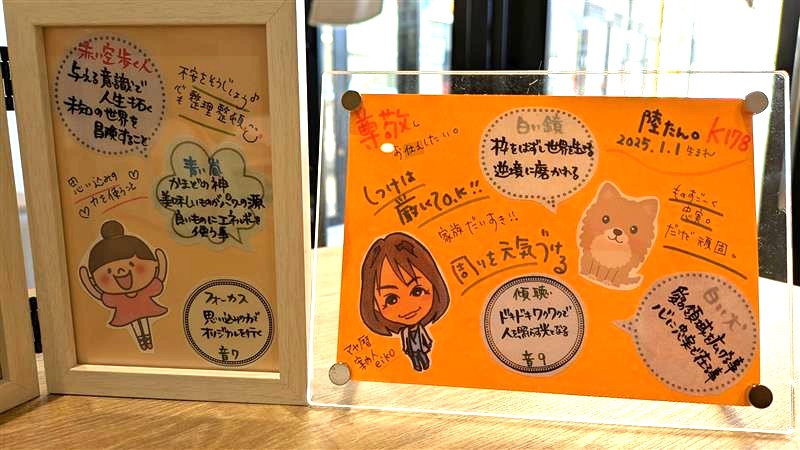 赤い空歩く人
与える意識で
人生を拓く
未知の世界を
冒険すること
不安をそうじしよう♪
心も整理整頓
思い込みの
力を使うっと
青い嵐
かまどの神
美味しいものがパワーの源
良いものにエネルギーを
使う事
フォーカス
思い込みの力が
オリジナルを行く
音7
尊敬し
お伝えしたい。
しつけは
厳しくてO.K!!
家族だいすき!!
周りを元気づける
マヤ暦
鏡の人
eiko
白い鏡
枠をはずし世界を生きる
逆境に磨かれる
傾聴
ドキドキワクワクで
音9
陸たん。
2025.1.1生まれ
K178
ものすごーく
忠実。
だけど頑固。
白い犬
心に忠実で在る事